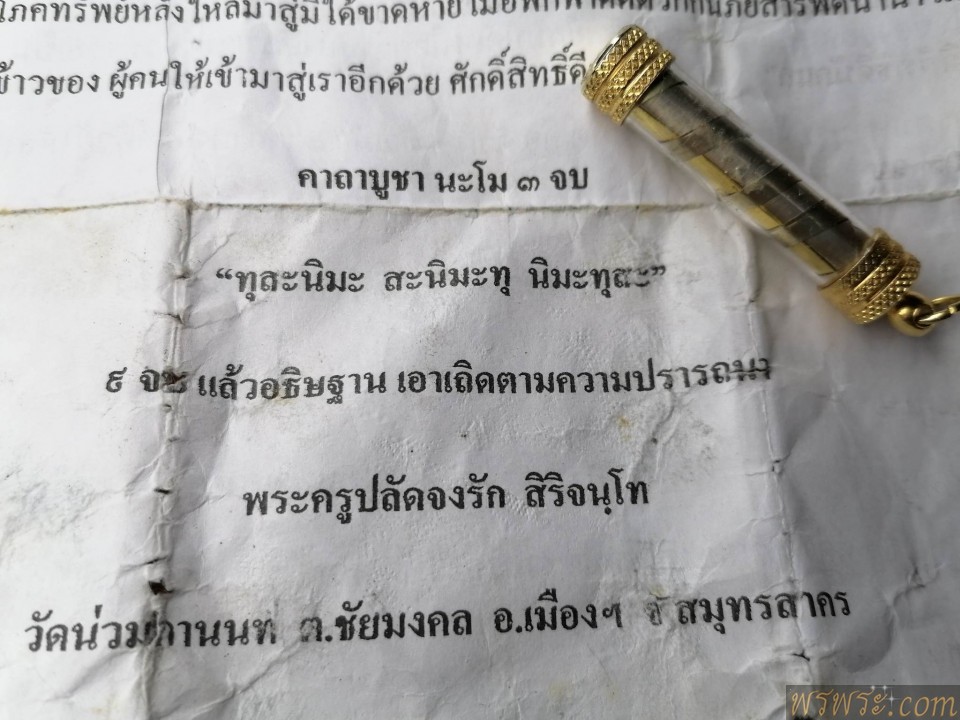 โภคทรัพย์หลั่งไหลมาสู่มิได้ขาดหาย
ข้าวของ ผู้คนให้เข้ามาสู่เราอีกด้วย ศักดิ์สิทธิ์ดี
คาถาบูชา นะโม ๓ จบ
“ทุสะนิมะ สะนิมะทุ นิมะทุสะ”
๙ จบ แล้วอธิษฐาน เอาเถิดตามความปรารถนา
พระครูปลัดจงรัก สิริจนฺโท
วัดน่วมกานนท์ ต.ชัยมงคล อ.เมืองฯ จ สมุทรสาคร
พรพระ.com